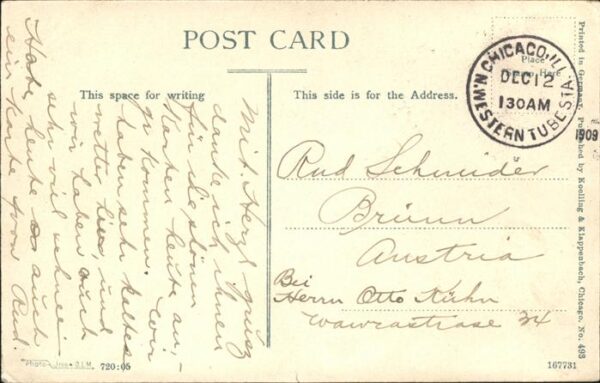 POST CARD
This space for writing
This side is for the Address.
Place
Here
CHICAGO, ILL.
DEC 12
1 30 AM
1909
N. WESTERN TUBE STA.
Mit Herzl. grüsz
danke ich ihnen
für die
Karten heute an-
gekommen. Wir
haben sehr kaltes
wetter hier, und
wir haben auch
sehr viel schnee.
Habe heute auch
ein Karte von Rud.
Rud Schneider
Brünn
Austria
Bei
Herrn Otto Kühn
Wawrastrase 34
Printed in Germany. Published by Koelling & Klappenbach, Chicago. No. 493
720:05
167731